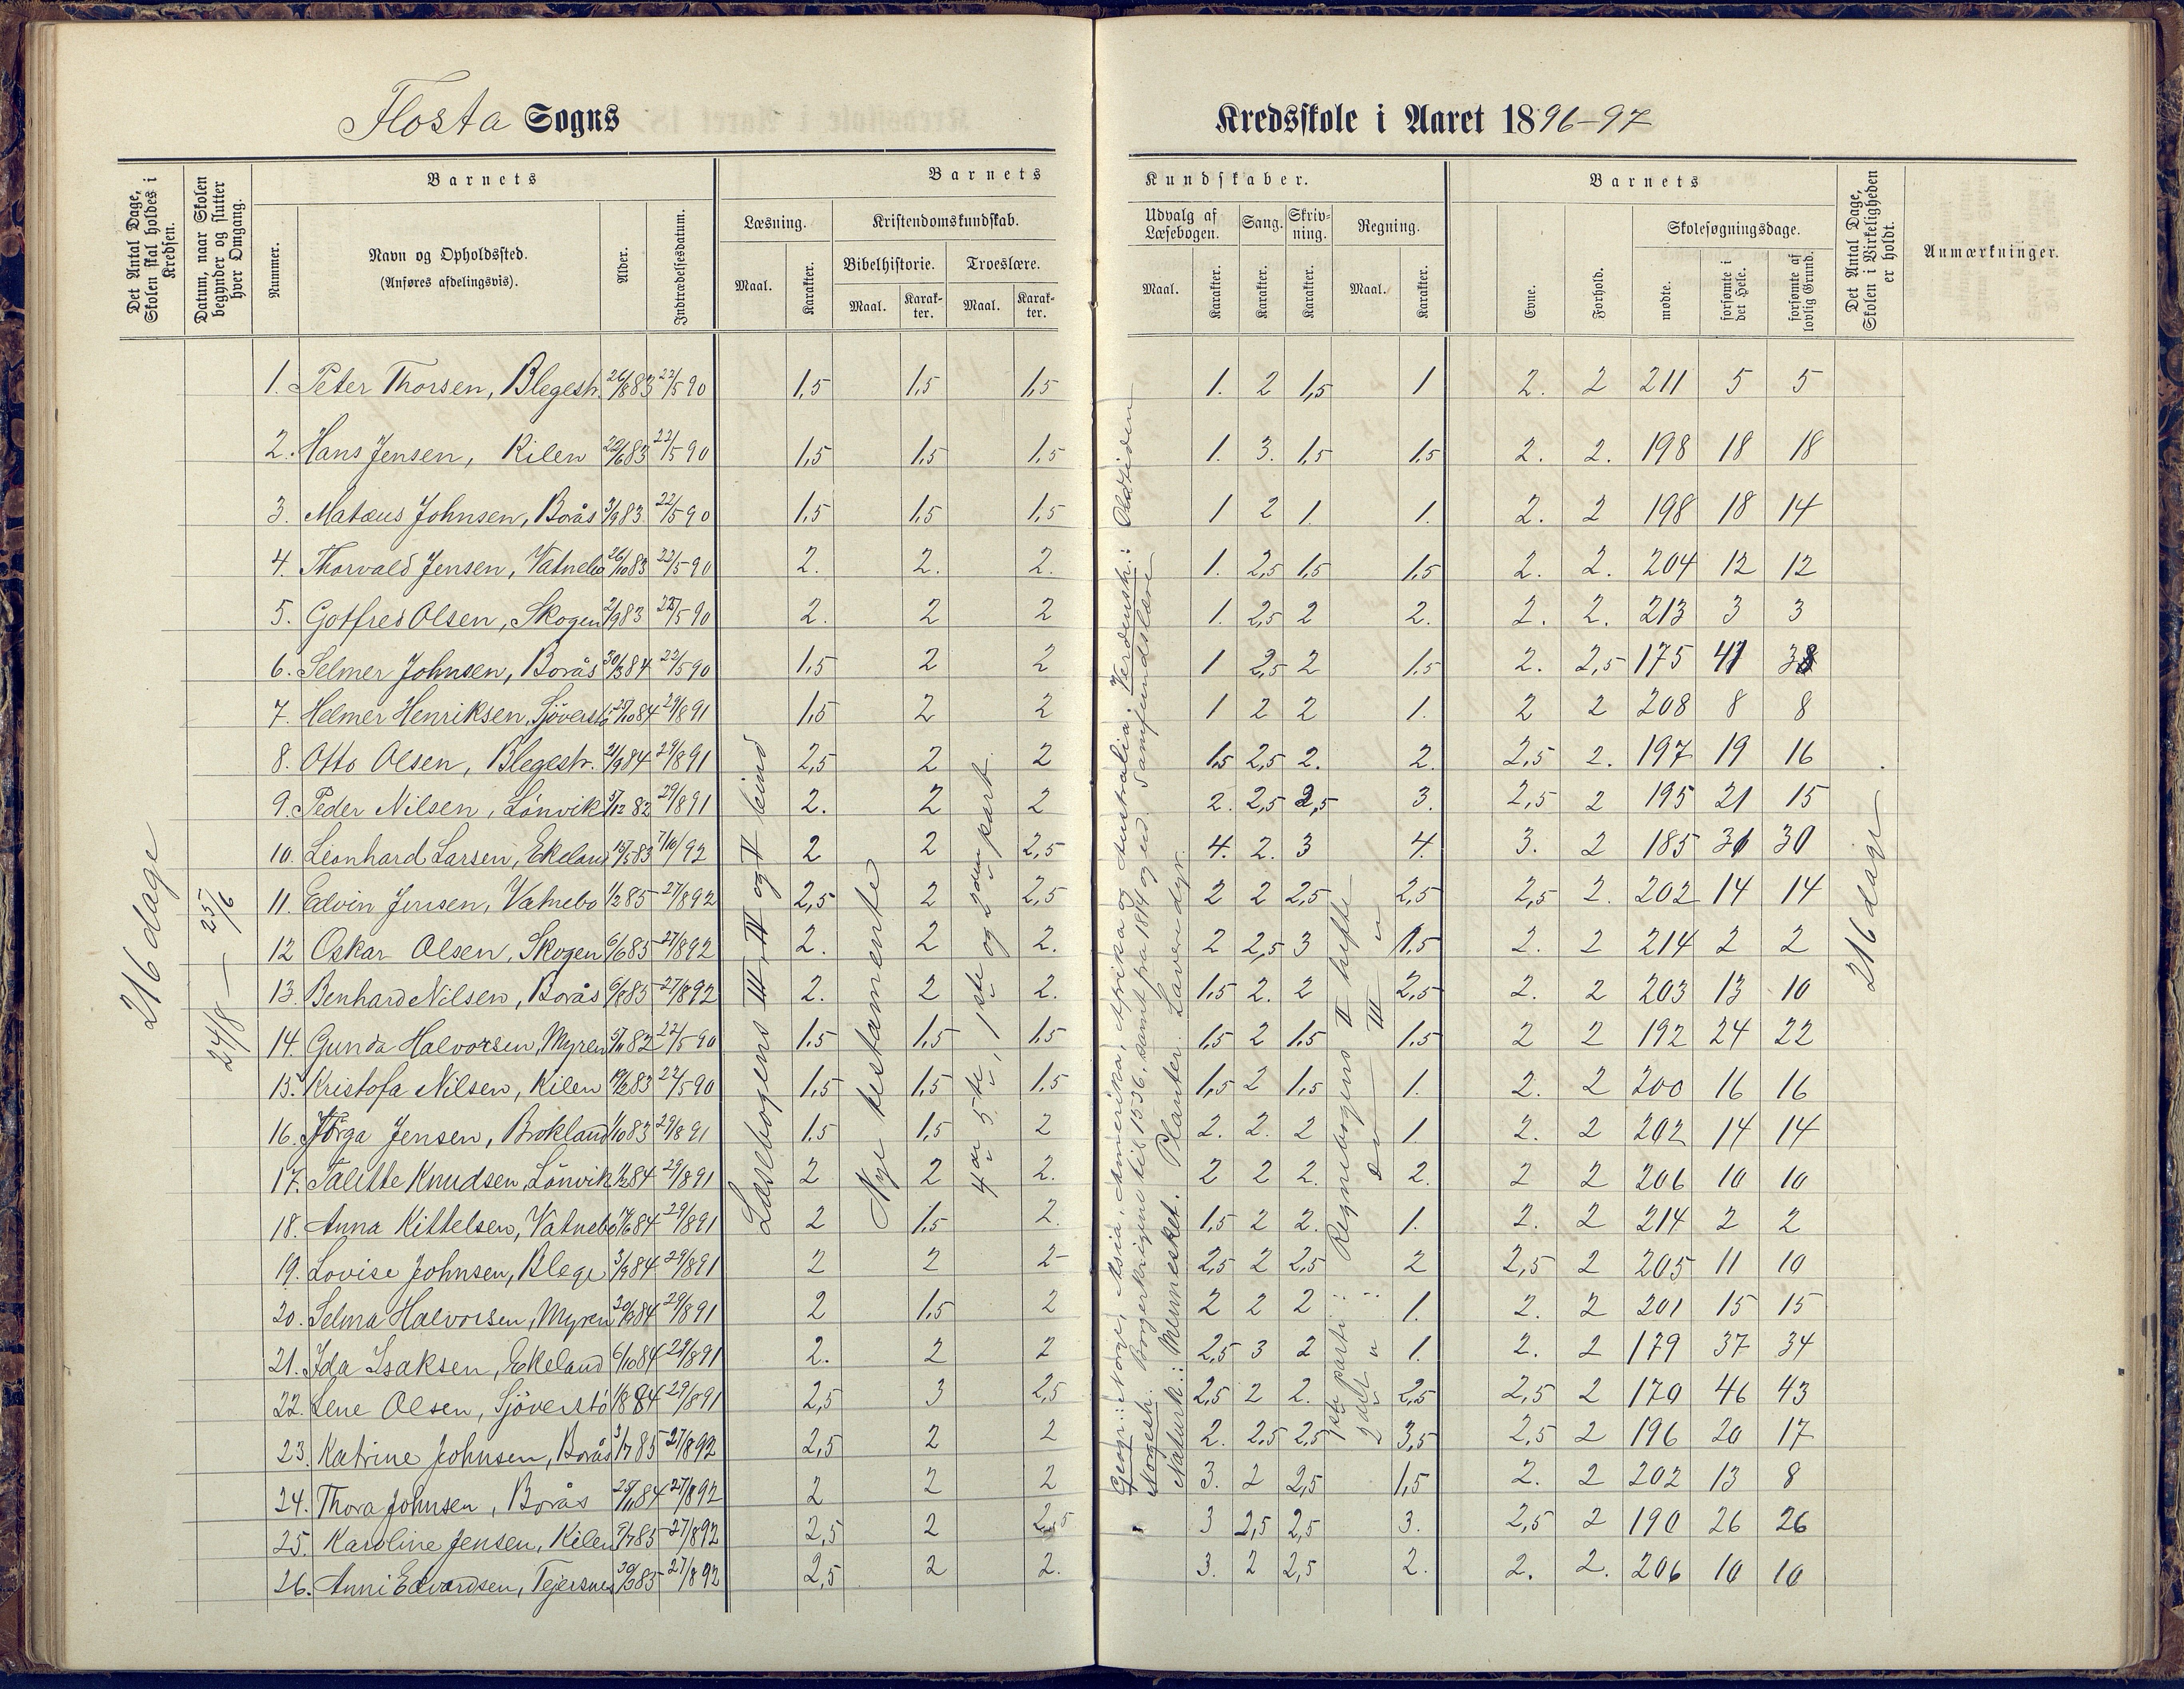 Flosta Sogns
Kredsskole i Aaret 1896-97
Det Antal Dage, Skolen skal holdes i Kredsen.
Datum, naar Skolen begynder og slutter hver Omgang.
Barnets
Nummer.
Navn og Opholdssted.
(Anføres afdelingsvis).
Alder.
Indtrædelsesdatum.
Barnets
Læsning.
Maal.
Karakter.
Kristendomskundskab.
Bibelhistorie.
Maal.
Karakter.
Troeslære.
Maal.
Karakter.
Kundskaber.
Udvalg af Læsebogen.
Maal.
Karakter.
Sang.
Karakter.
Skrivning.
Karakter.
Regning.
Maal.
Karakter.
Barnets
Evne.
Forhold.
Skolesøgningsdage.
mødte.
forsømte i det Hele.
forsømte af lovlig Grund.
Det Antal Dage, Skolen i Virkeligheden er holdt.
Anmærkninger.
216 dage
24/8 — 25/6
Læsebogens III, IV og V bind
Nye testamente
4de, 5te, 1ste og 2den part.
Geogr.: Norge, Asia, Amerika, Afrika og Australia. Verdensh.: Oldtiden
Norgesh. Borgerkrigene til 1536, samt fra 1814 og ud. Samfundslære
Naturk.: Mennesket. Planter. Lavere dyr.
Regnebogens II hefte
III
1ste parti
2det
216 dage
1. Peter Thorsen, Blegestr. 26/8 83 22/5 90 1,5 1,5 1,5 1. 2 1,5 1 2. 2 211 5 5
2. Hans Jensen, Kilen 22/6 83 22/5 90 1,5 1,5 1,5 1. 3. 1,5 1,5 2. 2. 198 18 18
3. Matæus Johnsen, Borås 3/9 83 22/5 90 1,5 1,5 1,5 1 2 1. 1. 2. 2 198 18 14
4. Thorvald Jensen, Vatnebo 26/10 83 22/5 90 2. 2. 2. 1. 2,5 1,5 1,5 2. 2. 204 12 12
5. Gotfred Olsen, Skogen 2/9 83 22/5 90 2. 2 2 1. 2,5 2 2. 2. 2. 213 3 3
6. Selmer Johnsen, Borås 30/3 84 22/5 90 1,5 2 2 1 2,5 2 1,5 2. 2,5 175 41 38
7. Helmer Henriksen, Sjöverstö 29/10 84 29/8 91 1,5 2 2 1 2 2 1. 2 2 208 8 8
8. Otto Olsen, Blegestr. 21/9 84 29/8 91 2,5 2 2 1,5 2,5 2. 2. 2,5 2. 197 19 16
9. Peder Nilsen, Lönvik 5/12 82 29/8 91 2. 2 2 2. 2,5 2,5 3. 2,5 2 195 21 15
10. Leonhard Larsen, Ekeland 15/5 83 7/10 92 2 2 2,5 4. 2. 3 4. 3. 2 185 31 30
11. Edvin Jensen, Vatnebo 1/2 85 27/8 92 2,5 2 2,5 2 2 2,5 2,5 2,5 2. 202 14 14
12 Oskar Olsen, Skogen 6/6 85 27/8 92 2. 2 2. 2 2,5 3 1,5 2. 2 214 2 2
13. Benhard Nilsen, Borås 6/8 85 27/8 92 2. 2 2. 1,5 2. 2 2,5 2. 2 203 13 10
14. Gunda Halvorsen, Myren 5/11 82 22/5 90 1,5 1,5 1,5 1,5 2 1,5 1,5 2 2 192 24 22
15. Kristofa Nilsen, Kilen 19/2 83 22/5 90 1,5 1,5 1,5 1,5 2 1,5 1. 2. 2 200 16 16
16. Jörga Jensen, Brokland 1/10 83 29/8 91 1,5 1,5 2 2. 2. 2 1. 2. 2 202 14 14
17. Talitte Knudsen, Lönvik 1/2 84 29/8 91 2 2 2. 2 2 2. 2. 2 2 206 10 10
18. Anna Kittelsen, Vatnebo 17/6 84 29/8 91 2 1,5 2. 1,5 2 2. 1. 2. 2 214 2 2
19. Lovise Johnsen, Blege 3/9 84 29/8 91 2 2 2 2,5 2 2,5 2 2,5 2 205 11 10
20. Selma Halvorsen, Myren 20/9 84 29/8 91 2 1,5 2 2 2 2 1. 2. 2 201 15 15
21. Ida Isaksen, Ekeland 6/10 84 29/8 91 2. 2 2 2,5 3 2 1. 2. 2 179 37 34
22. Lene Olsen, Sjöverstö 1/8 84 29/8 91 2,5 3 2,5 2,5 2 2. 2,5 2,5 2 170 46 43
23. Katrine Johnsen, Borås 3/7 85 27/8 92 2,5 2 2 2. 2,5 2,5 3,5 2,5 2 196 20 17
24. Thora Johnsen, Borås 25/11 84 27/8 92 2 2 2 3. 2 2,5 1,5 2. 2 202 13 8
25. Karoline Jensen, Kilen 9/7 85 27/8 92 2,5 2 2,5 3 2,5 2,5 3. 2,5 2 190 26 26
26. Anni Edvardsen, Tejersnes 30/3 85 27/8 92 2,5 2 2. 3. 2 2,5 2. 2. 2. 206 10 10